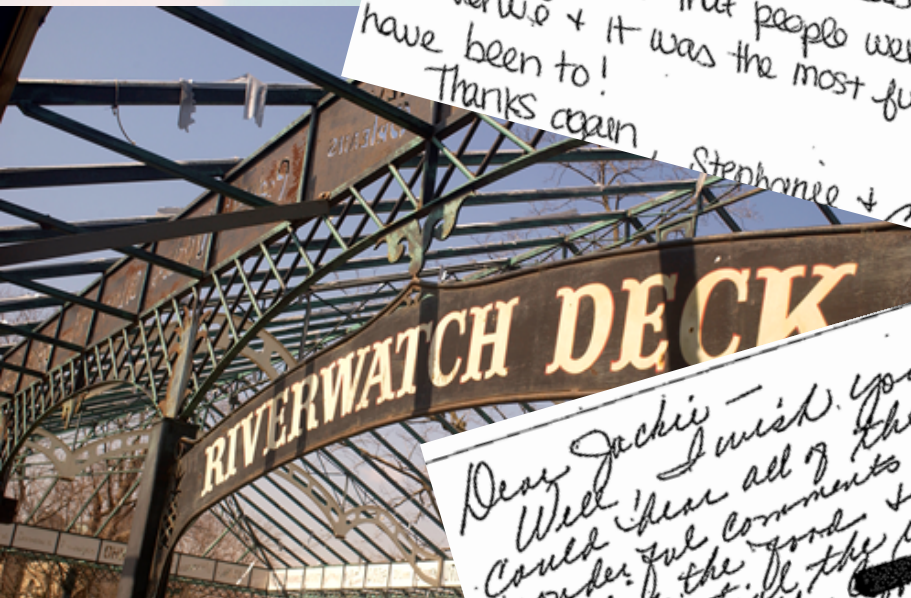 that people wer
& it was the most fu
have been to!
Thanks again
Stephanie &
RIVERWATCH DECK
Dear Jackie —
Well, I wish you
could hear all of the
comments
the food &